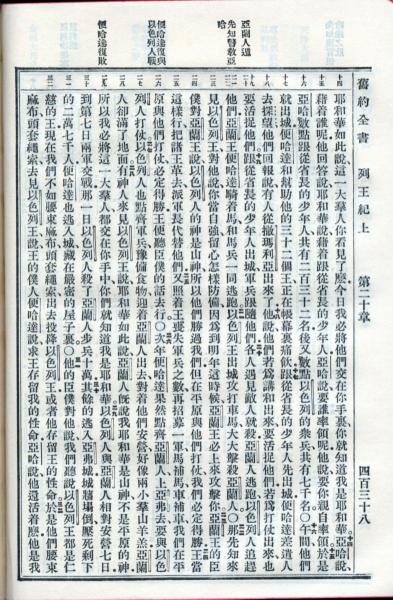 舊約全書 列王紀上 第二十章 四百三十八
先知警教亞
哈
便哈達復與
以色列人戰
便哈達復敗
耶和華如此說這一大羣人你看見了麼今日我必將他們交在你手裏你就知道我是耶和華亞哈說
藉着誰呢他回答說耶和華說藉着跟從省長的少年人亞哈說要誰率領呢他說要你親自率領於是
亞哈數點跟從省長的少年人共有二百三十二名後又數點以色列的衆兵共有七千名○午間他們
就出城便哈達和幫助他的三十二個王正在帳幕裏痛飲跟從省長的少年人先出城便哈達差遣人
去探望他們回報說有人從撒瑪利亞出來了他說他們若爲講和出來要活捉他們若爲打仗出來也
要活捉他們跟從省長的少年人出城軍兵跟隨他們各人遇見敵人就殺亞蘭人逃跑以色列人追趕
他們亞蘭王便哈達騎着馬和馬兵一同逃跑以色列王出城攻打車馬大大擊殺亞蘭人○那先知來
見以色列王對他說你當自強留心怎樣防備因爲到明年這時候亞蘭王必上來攻擊你亞蘭王的臣
僕對亞蘭王說以色列人的神是山神所以他們勝過我們但在平原與他們打仗我們必定得勝王當
這樣行把諸王革去派軍長代替他們又照着王喪失軍兵之數再招募一軍馬補馬車補車我們在平
原與他們打仗必定得勝王便聽臣僕的話去行○次年便哈達果然點齊亞蘭人上亞弗去要與以色
列人打仗以色列人也點齊軍兵豫備食物迎着亞蘭人出去對着他們安營好像兩小羣山羊羔亞蘭
人卻滿了地面有神人來見以色列王說耶和華如此說亞蘭人旣說我耶和華是山神不是平原的神
所以我必將這一大羣人都交在你手中你們就知道我是耶和華以色列人與亞蘭人相對安營七日
到第七日兩軍交戰那一日以色列人殺了亞蘭人步兵十萬其餘的逃入亞弗城城牆倒壓死剩下
的二萬七千人便哈達也逃入城藏在嚴密的屋子裏○他的臣僕對他說我們聽說以色列王都是仁
慈的王現在我們不如腰束麻布頭套繩索出去投降以色列王或者他存留王的性命於是他們腰束
麻布頭套繩索去見以色列王說王的僕人便哈達說求王存留我的性命亞哈說他還活着麼他是我